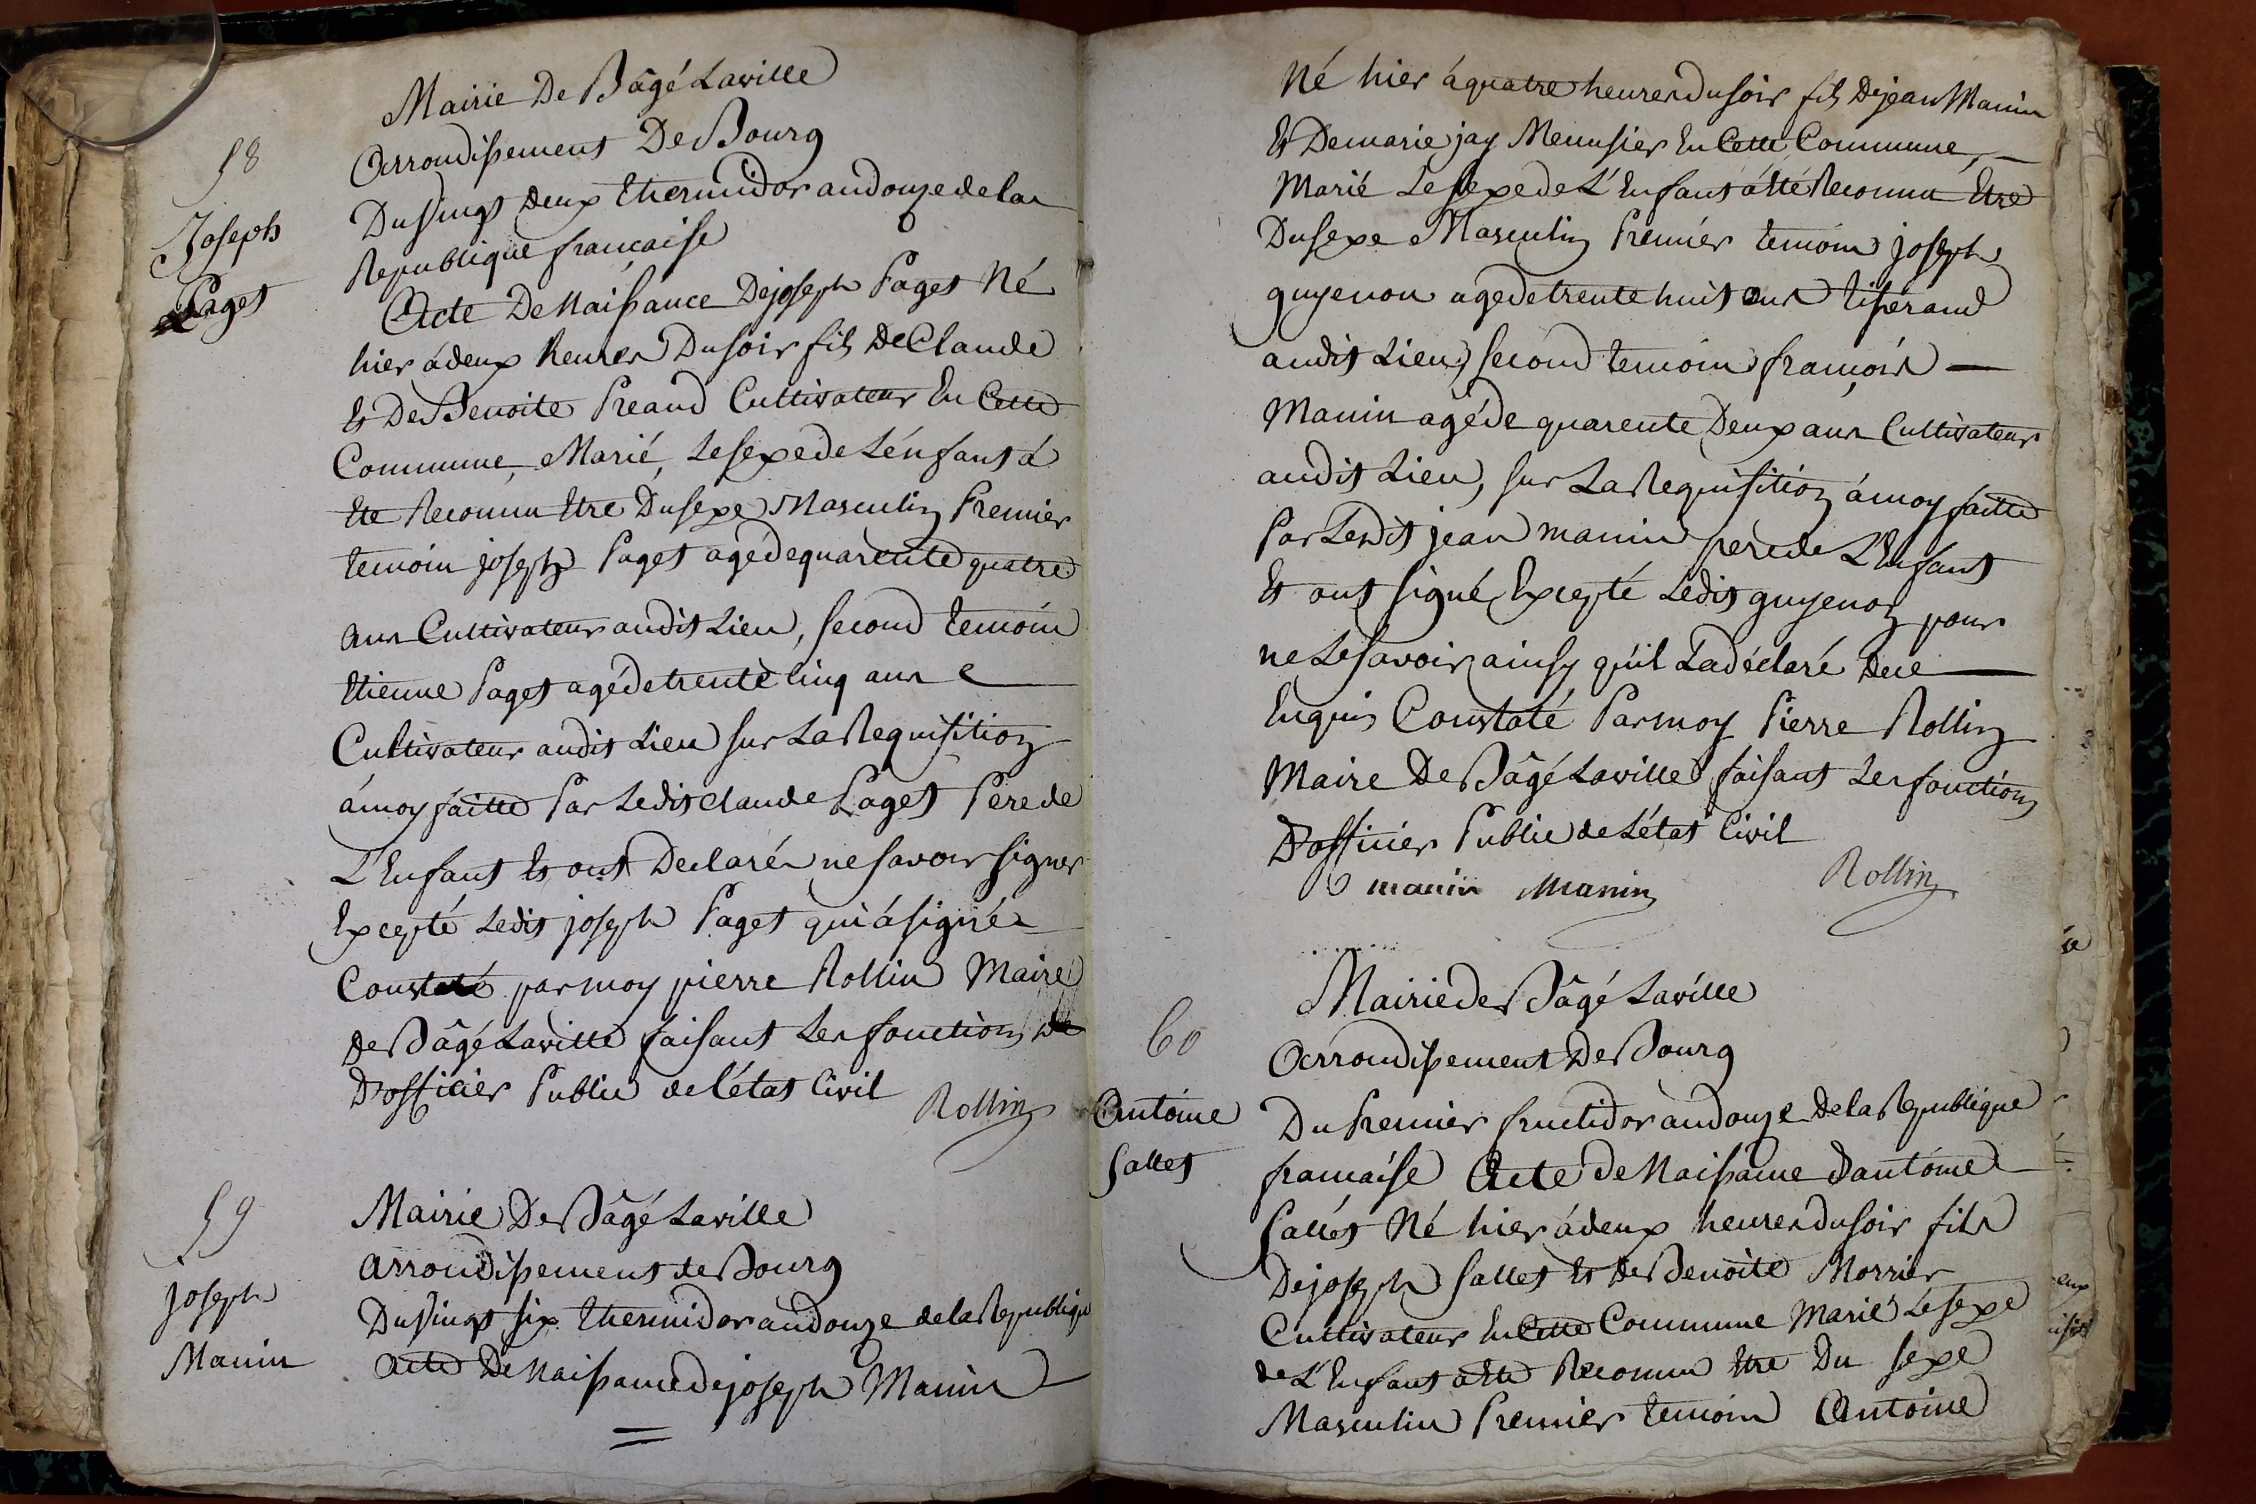 Mairie De Bâgé Laville
58
Arrondissement De Bourg
Du Vingt deux thermidor an douze de la
Joseph
Republique francaise
Paget
Acte De Naissance De joseph Paget Né
hier à deux heures Du soir fils De Claude
Et De Benoite Preaud Cultivateur En Cette
Commune, Marié, Le sexe de L'énfant à
Eté Reconnu Etre Du sexe Masculin Premier
temoin joseph Paget agé de quarente quatre
ans Cultivateur audit Lieu, second temoin
Etienne Paget agé de trente Cinq ans
Cultivateur audit Lieu sur La Requisition
à moy faitte Par Ledit Claude Paget Pere de
L'Enfant Et ont Declarés ne savoir signer
Excepté Ledit joseph Paget qui à signé
Constaté par moy pierre Rollin Maire
de Bâgé Laville faisant Les fonctions de
D'officier Public de L'état Civil
Rollin
59
Mairie De Bâgé Laville
Arrondissement de Bourg
joseph
Du Vingt six thermidor an douze de la Republique
Manin
acte De Naissance de joseph Manin
Né hier à quatre heures du soir fils De jean Manin
Et De marie jay Menusier En Cette Commune,
Marié Le sexe de L'Enfant à été Reconnu Etre
Du sexe Masculin Premier temoin joseph
guyenon agé de trente huit ans tisserand
audit Lieu, second temoin françois
Manin agé de quarente Deux ans Cultivateur
audit Lieu, sur La Requisition à moy faitte
Par Ledit jean manin pere de L'Enfant
Et ont signé Excepté Ledit guyenon pour
ne Le savoir ainsy qu'il L'a déclaré De ce
Enquis Constaté Par moy Pierre Rollin
Maire De Bâgé Laville faisant Les fonctions
D'officier Public de L'état Civil
manin Manin
Rollin
Mairie de Bâgé Laville
60
Arrondissement De Bourg
Antoine
Du Premier fructidor an douze De la Republique
Sallet
francaise Acte de Naissance d'antoine
Sallet Né hier à deux heures du soir fils
De joseph Sallet Et De Benoite Morrier
Cultivateur En Cette Commune Marié Le sexe
de L'Enfant a Eté Reconnu Etre Du sexe
Masculin Premier temoin Antoine